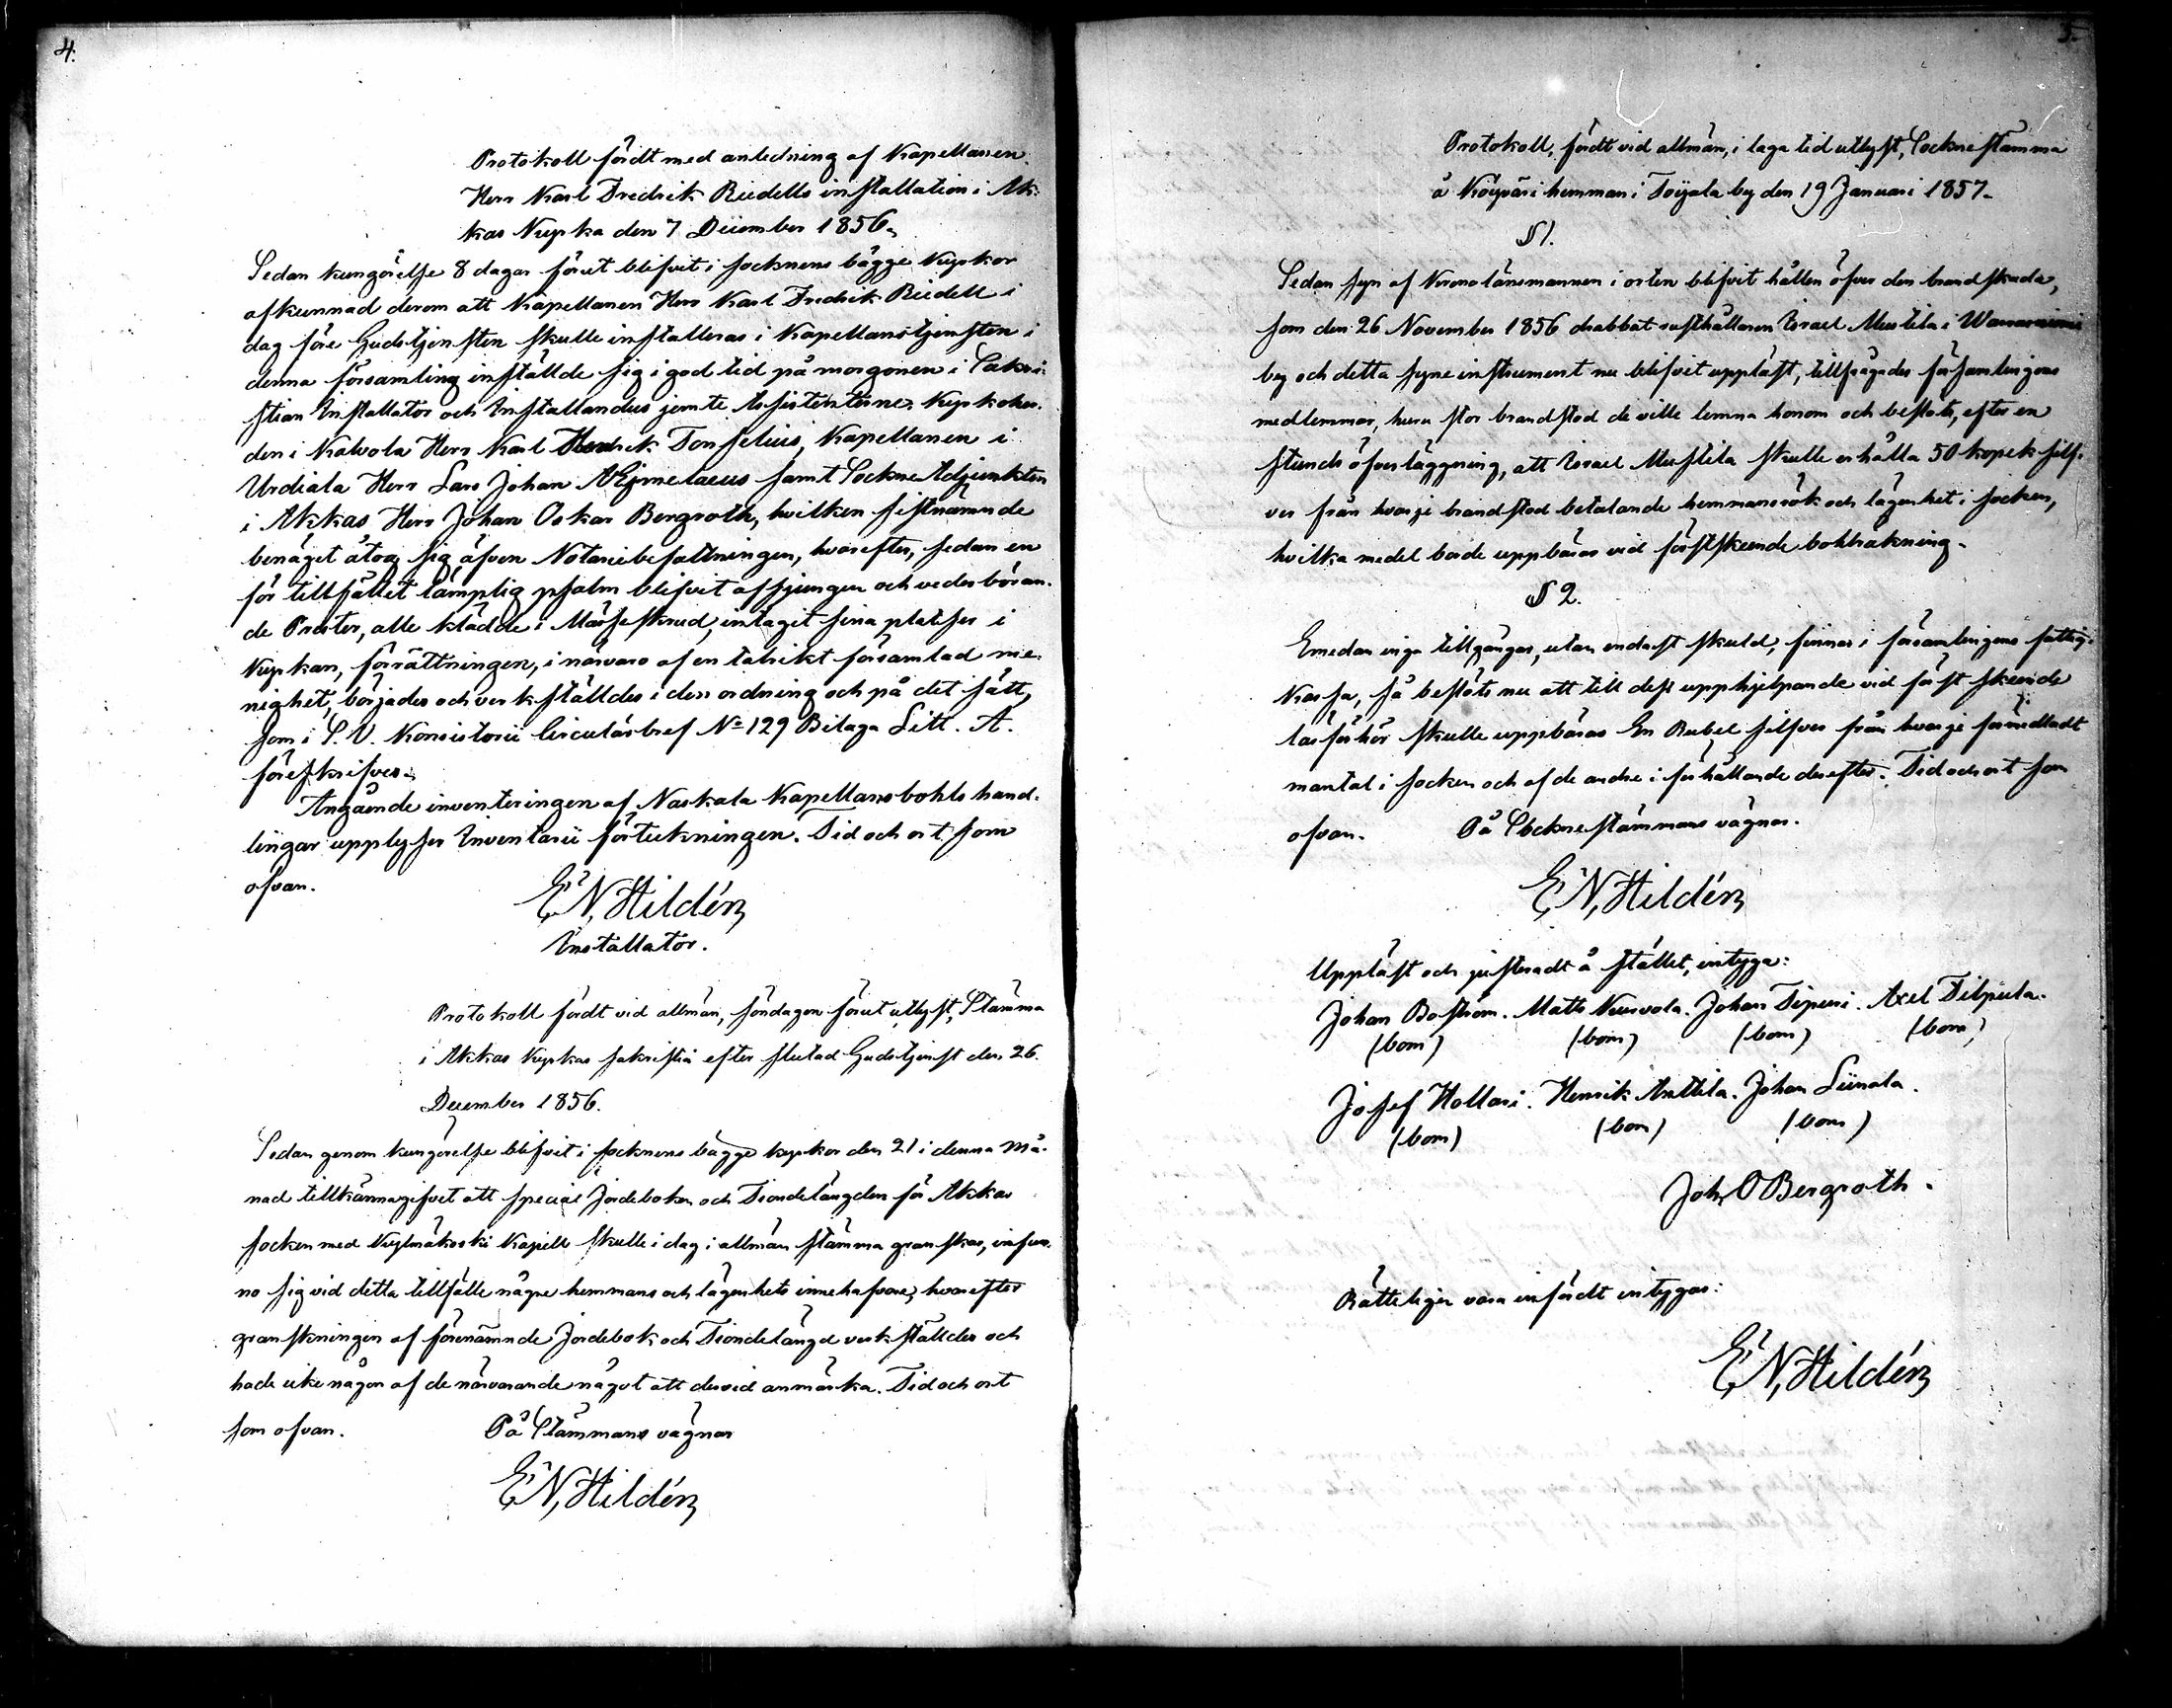 4.
Protokoll fördt med anledning af Kapellanen
Herr Karl Fredrik Riedells installation i Ak-
kas Kyrka den 7 December 1856.
Sedan kungörelse 8 dagar förut blifvit i socknens bägge Kyrkor
afkunnad derom att Kapellanen Herr Karl Fredrik Riedell i
dag före Gudstjensten skulle installeras i Kapellanstjensten i
denna församling inställde sig i god tid på morgonen i Sakri-
stian Installator och Installandus jemte Assistenterne, Kyrkoher-
den i Kalvola Herr Karl Henrik Tonselius, Kapellanen i
Urdiala Herr Lars Johan AEjmelaeus samt Sockne Adjunkten
i Akkas Herr Johan Oskar Bergroth, hvilken sistnämnde
benäget åtog sig äfven Notariebefattningen, hvarefter, sedan en
för tillfället lämplig psalm blifvit afsjungen och vederböran-
de Prester, alle klädde i Mässeskrud, intagit sina platser i
Kyrkan, förrättningen, i närvaro af en talrikt församlad me-
nighet, börjades och verkställdes i den ordning och på det sätt,
som i S. V. Konsistorii Circulärbref No 129 Bilaga Litt. A.
föreskrifves.
Angående inventeringen af Naskala Kapellansbohls hand-
lingar upplyser Inventarii förteckningen. Tid och ort som
ofvan.
E. N. Hildén
Installator.
Protokoll fördt vid allmän, söndagen förut utlyst, Stämma
i Akkas Kyrkas sakristia efter slutad Gudstjenst den 26.
December 1856.
Sedan genom kungörelse blifvit i socknens bägge kyrkor den 21 i denna må-
nad tillkännagifvet att special Jordeboken och Tiondelängden för Akkas
socken med Kylmäkoski Kapell skulle i dag i allmän stämma granskas, infun-
no sig vid detta tillfälle någre hemmans och lägenhets innehafvare, hvarefter
granskningen af förenämnde Jordebok och Tiondelängd verkställdes och
hade icke någon af de närvarande något att dervid anmärka. Tid och ort
som ofvan. På Stämmans vägnar
E. N. Hildén
5.
Protokoll, fördt vid allmän, i laga tid utlyst, Sockne stämma
å Köyväri hemman i Toijala by den 19 Januari 1857.
§ 1.
Sedan syn af Kronolänsmannen i orten blifvit hållen öfver den brandskada,
som den 26 November 1856 drabbat rusthållaren Israel Mustila i
by och detta syneinstrument nu blifvit uppläst, tillfrågades församlingens
medlemmar, huru stor brandstod de ville lemna honom och beslöts, efter en
stunds öfverläggning, att Israel Mustila skulle erhålla 50 kopek silf-
ver från hvarje brandstod betalande hemmansrök och lägenhet i socken,
hvilka medel borde uppbäras vid förstskeende bohlräkning.
§ 2.
Emedan inga tillgångar, utan endast skuld, finnes i församlingens fattig-
kassa, så beslöts nu att till dess upphjelpande vid först skeende
läsförhör skulle uppbäras En Rubel silfver från hvarje förmedladt
mantal i socken och af de andre i förhållande derefter. Tid och ort som
ofvan. På Socknestämmans vägnar.
E. N. Hildén
Uppläst och justeradt å stället, intyga:
Johan Boström. Matts Kurvola. Johan Sipuri. Axel Tilpula.
(bom) (bom) (bom) (bom)
Josef Hollari. Henrik Anttila. Johan Liunala.
(bom) (bom) (bom)
Joh. O Bergroth.
Rätteligen vara infördt intygar:
E. N. Hildén